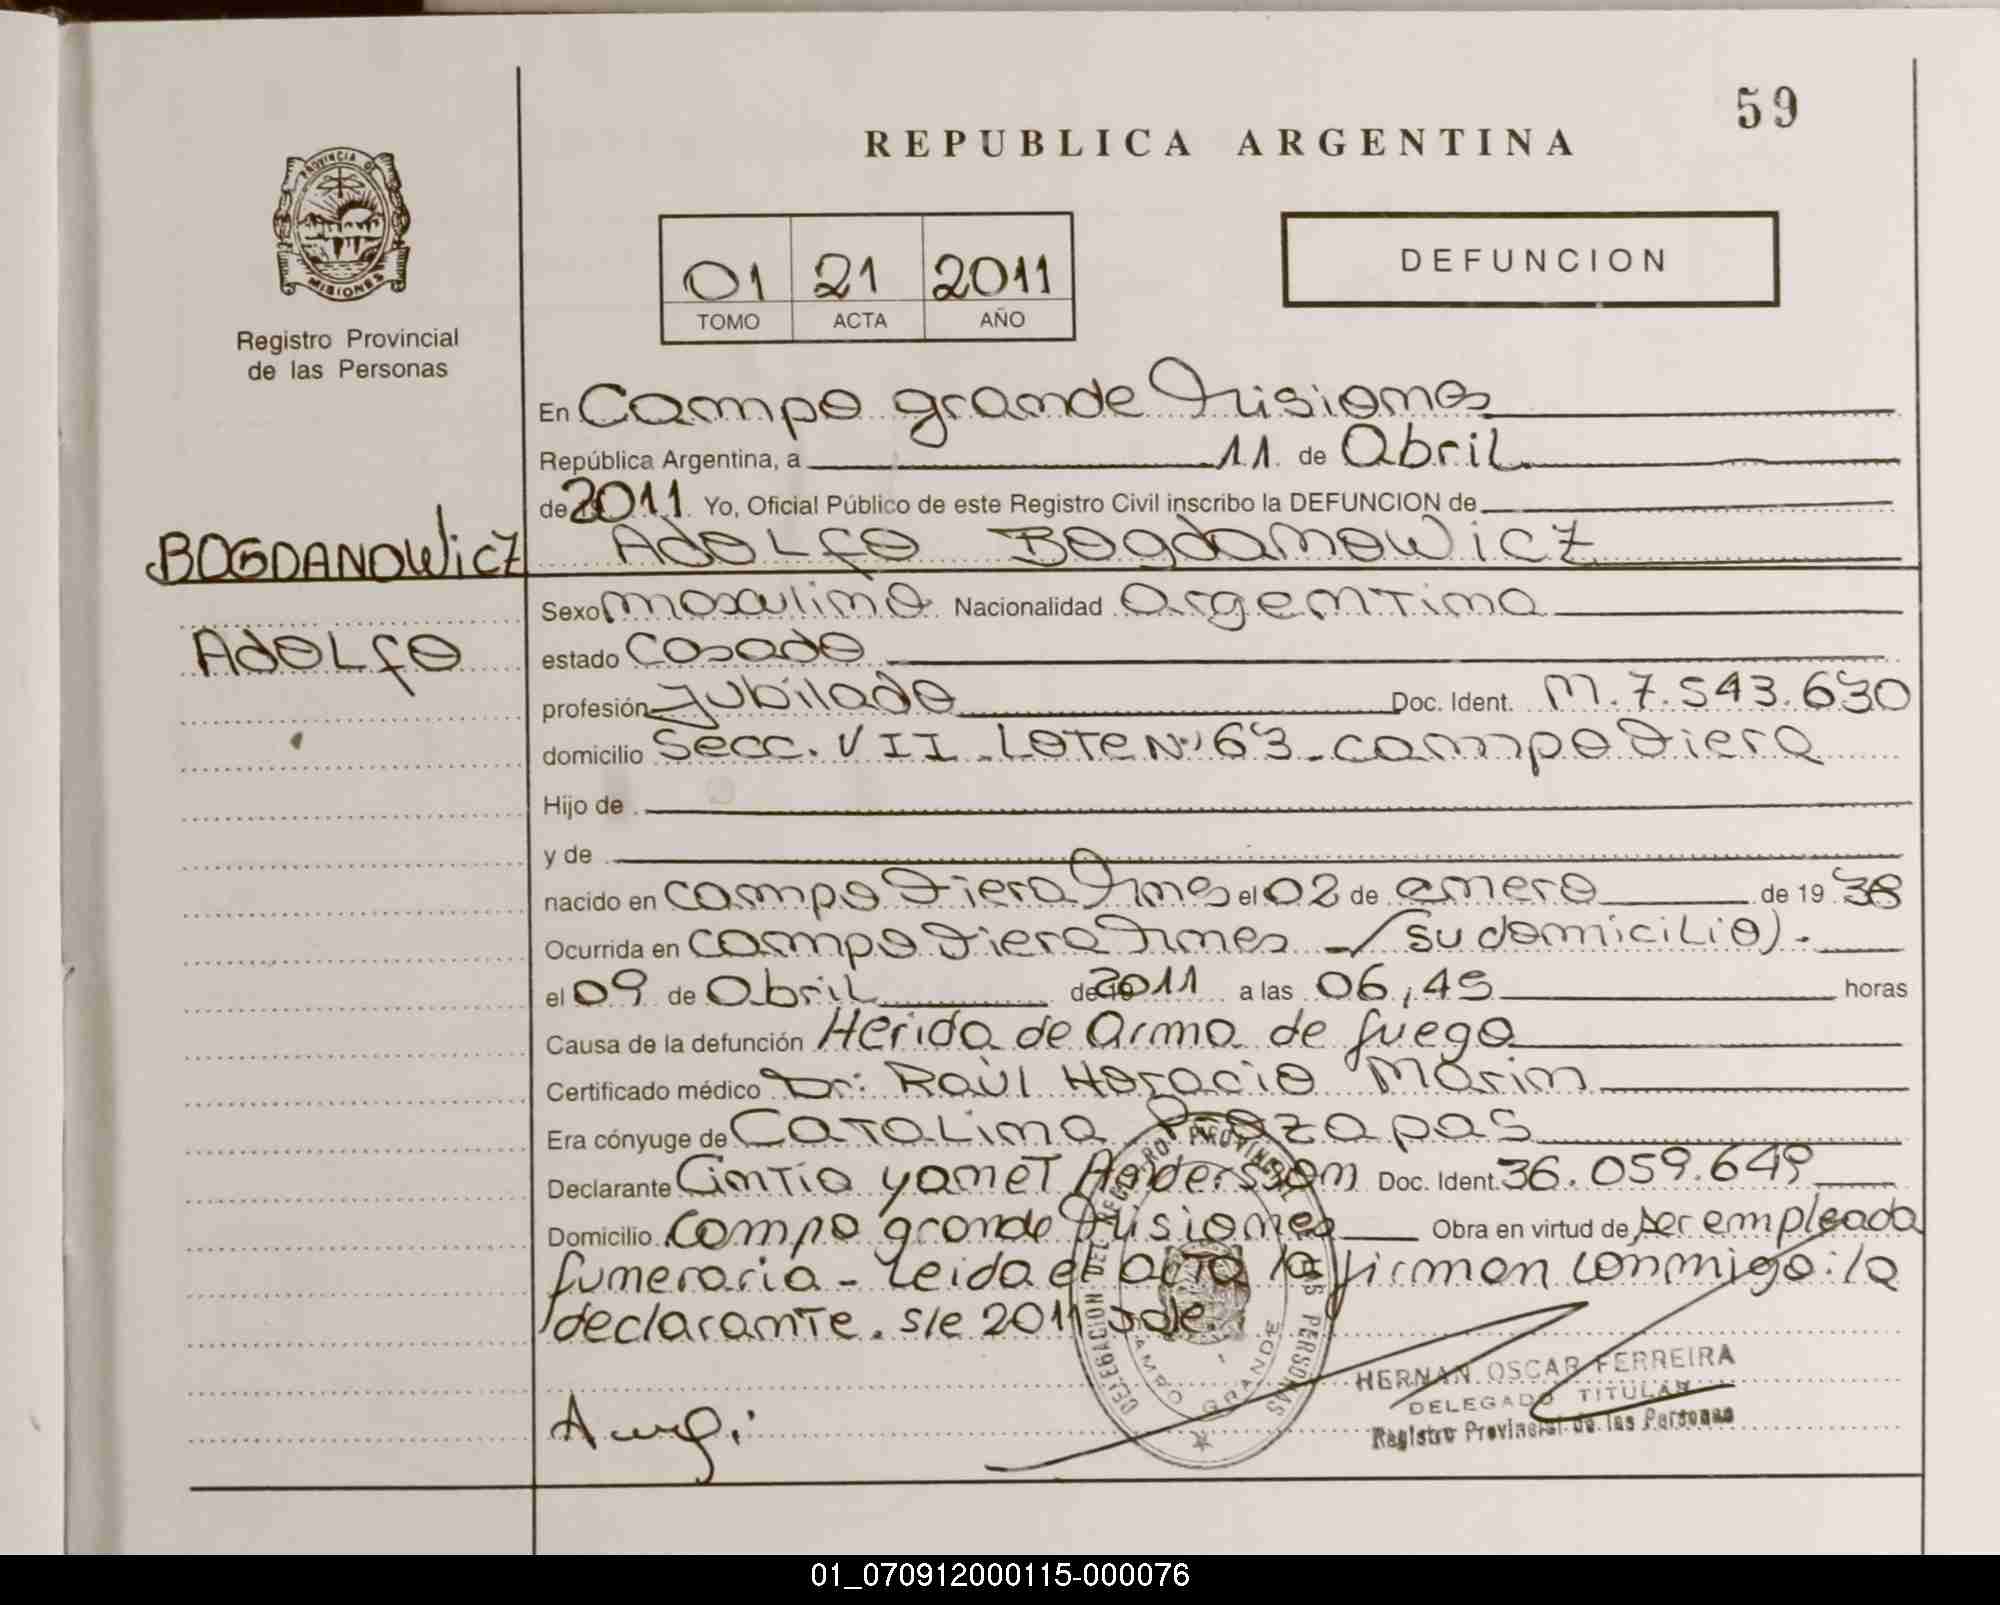 59
REPUBLICA ARGENTINA
PROVINCIA DE
MISIONES
Registro Provincial
de las Personas
01 21 2011
TOMO ACTA AÑO
DEFUNCION
En Campo grande Misiones
República Argentina, a 11 de Abril
de 2011 Yo, Oficial Público de este Registro Civil inscribo la DEFUNCION de
BOGDANOWicz
Adolfo Bogdanowicz
Adolfo
Sexo masculino Nacionalidad Argentina
estado Casado
profesión Jubilado Doc. Ident. M.7.543.630
domicilio Secc. VII - Lote Nº 63 - campo Viera
Hijo de
y de
nacido en campo Viera Mnes el 02 de enero de 19 38
Ocurrida en campo Viera Mnes - (su domicilio).-
el 09 de Abril de 2011 a las 06,45 horas
Causa de la defunción Herida de arma de fuego
Certificado médico Dr: Raùl Horacio Marin
Era cónyuge de Catalina
Declarante Cintia yanet Andersson Doc. Ident. 36.059.649
Domicilio Campo grande Misiones Obra en virtud de ser empleada
funeraria - Leida el acta la firman conmigo: la
declarante. s/e 2011 vale.
DELEGACION DEL REGISTRO PROVINCIAL DE LAS PERSONAS
CAMPO GRANDE
HERNAN OSCAR FERREIRA
DELEGADO TITULAR
Registro Provincial de las Personas
01_070912000115-000076